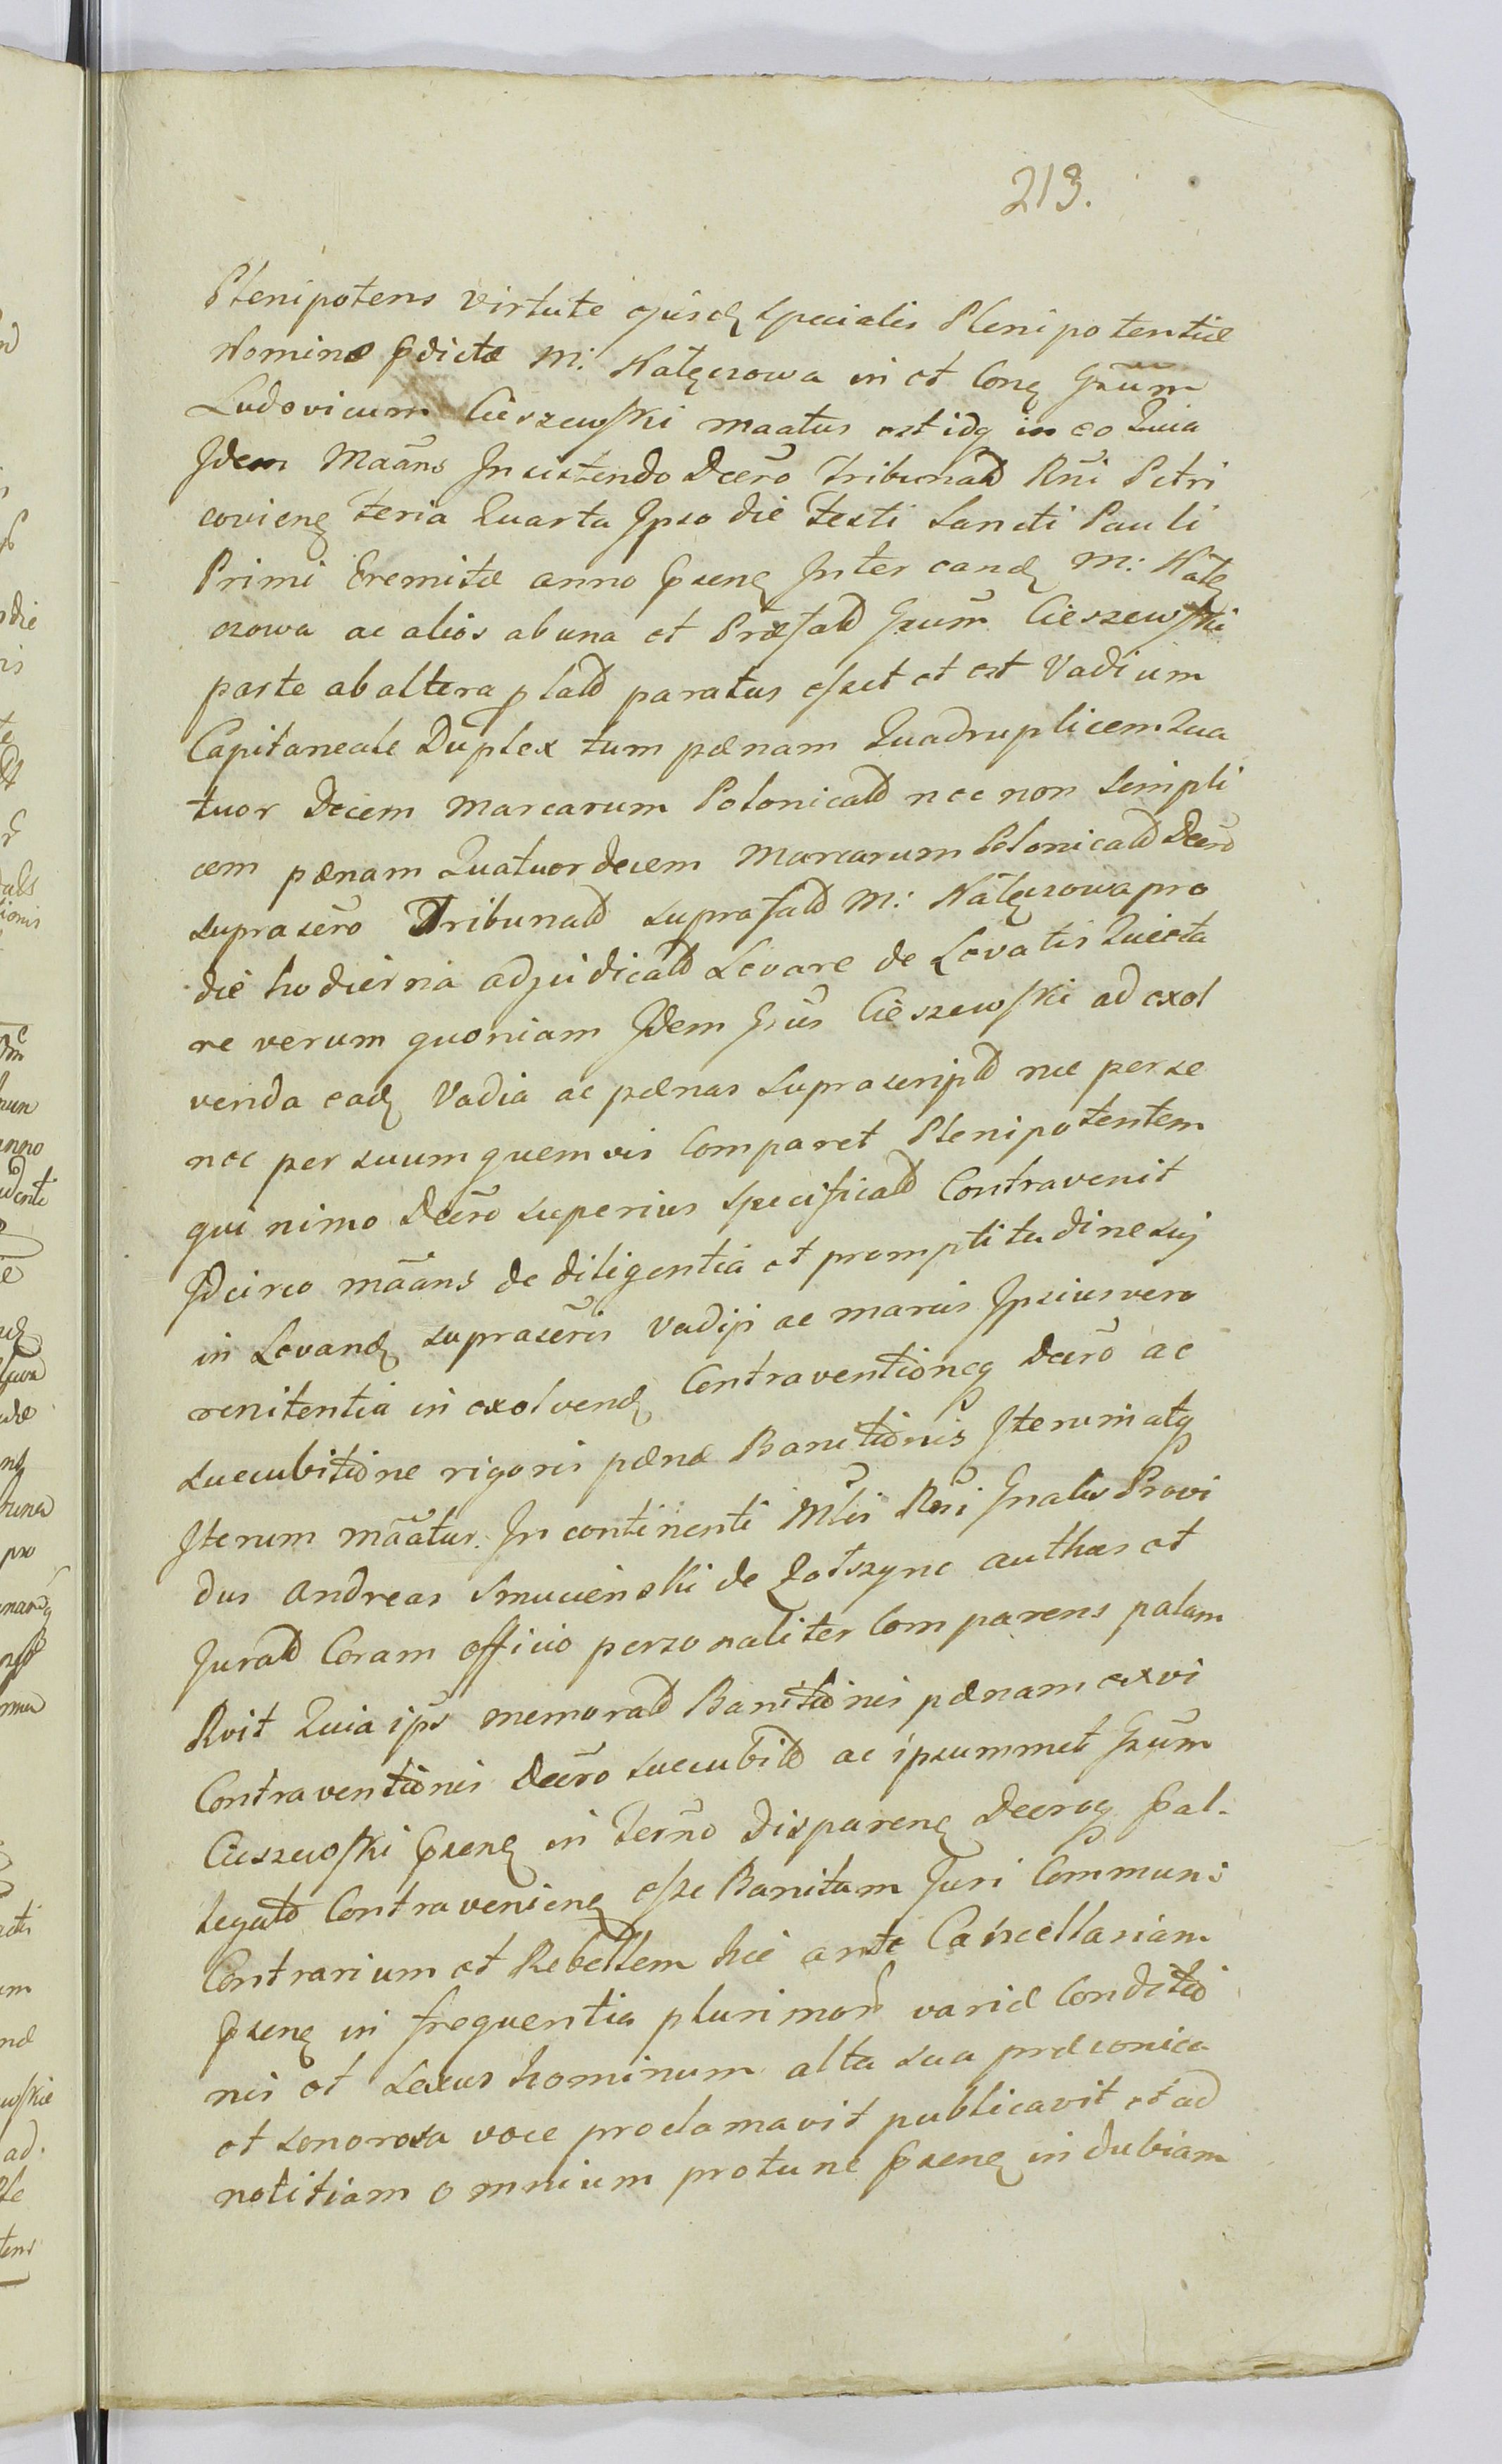 213.
Plenipotens virtute ejusdę specialis Plenipotentiæ
Nomine pdictæ M: Nałęczowa in et Conę Gsũm
Ludovicum Cieszewski maatus est idq in eo Quia
Idem Maãns Insistendo Dcẽro Tribunald Rñi Petri
covienę feria Quarta Ipso die festi Sancti Pauli
Primi Eremitæ anno psenę Inter eandę M: Nałę
czowa ac alios ab una et Præfatd Gsũm Cieszewski
parte ab altera platd paratus esset et est Vadium
Capitaneale Duplex tum pænam Quadruplicem Qua
tuor Decem Marcarum Polonicatd nec non simpli
cem pænam Quatuordecem Marcarum Polonicatd Dcẽro
suprascro Tribunald suprafatd M: Nałęczowa pro
die hodierna adjudicatd Levare de Levatis Quieta
re verum quoniam Idem Gsũs Cieszewski ad exol
venda eadę Vadia ac pænas suprascriptd nec per se
nec per suum quemvis Comparet Plenipotentem
qui nimo Dcẽro superius specificatd Contravenit
Idcirco mãans de diligentia et promptitudine suj
in Levandę suprascris Vadiji ac marcis Ipsius vero
renitentia in exolvendę Contraventioneq Dcẽro ac
succubitione rigoris pænæ Banitionis Iterum atq
Iterum mãatur. In continenti Mtis Rñi Gnalis Provi
dus Andreas Smucienski de Zołszync authes et
Juratd Coram officio personaliter Comparens palam
Rvit Quia ips memoratd Banitionis pænam ex vi
Contraventionis Dcẽro succubitd ac ipsummet Gsũm
Cieszewski psenę in Terño Disparenę Decroq pal-
legatd Contravenienę esse Banitum Juri Communi
Contrarium et Rebellem hic ante Cancellariam
psenę in frequentia plurimor variæ Conditio
nis et sexus hominum alta sua præconica
et sonorosa voce proclamavit publicavit et ad
notitiam omnium protunc psenę indubiam